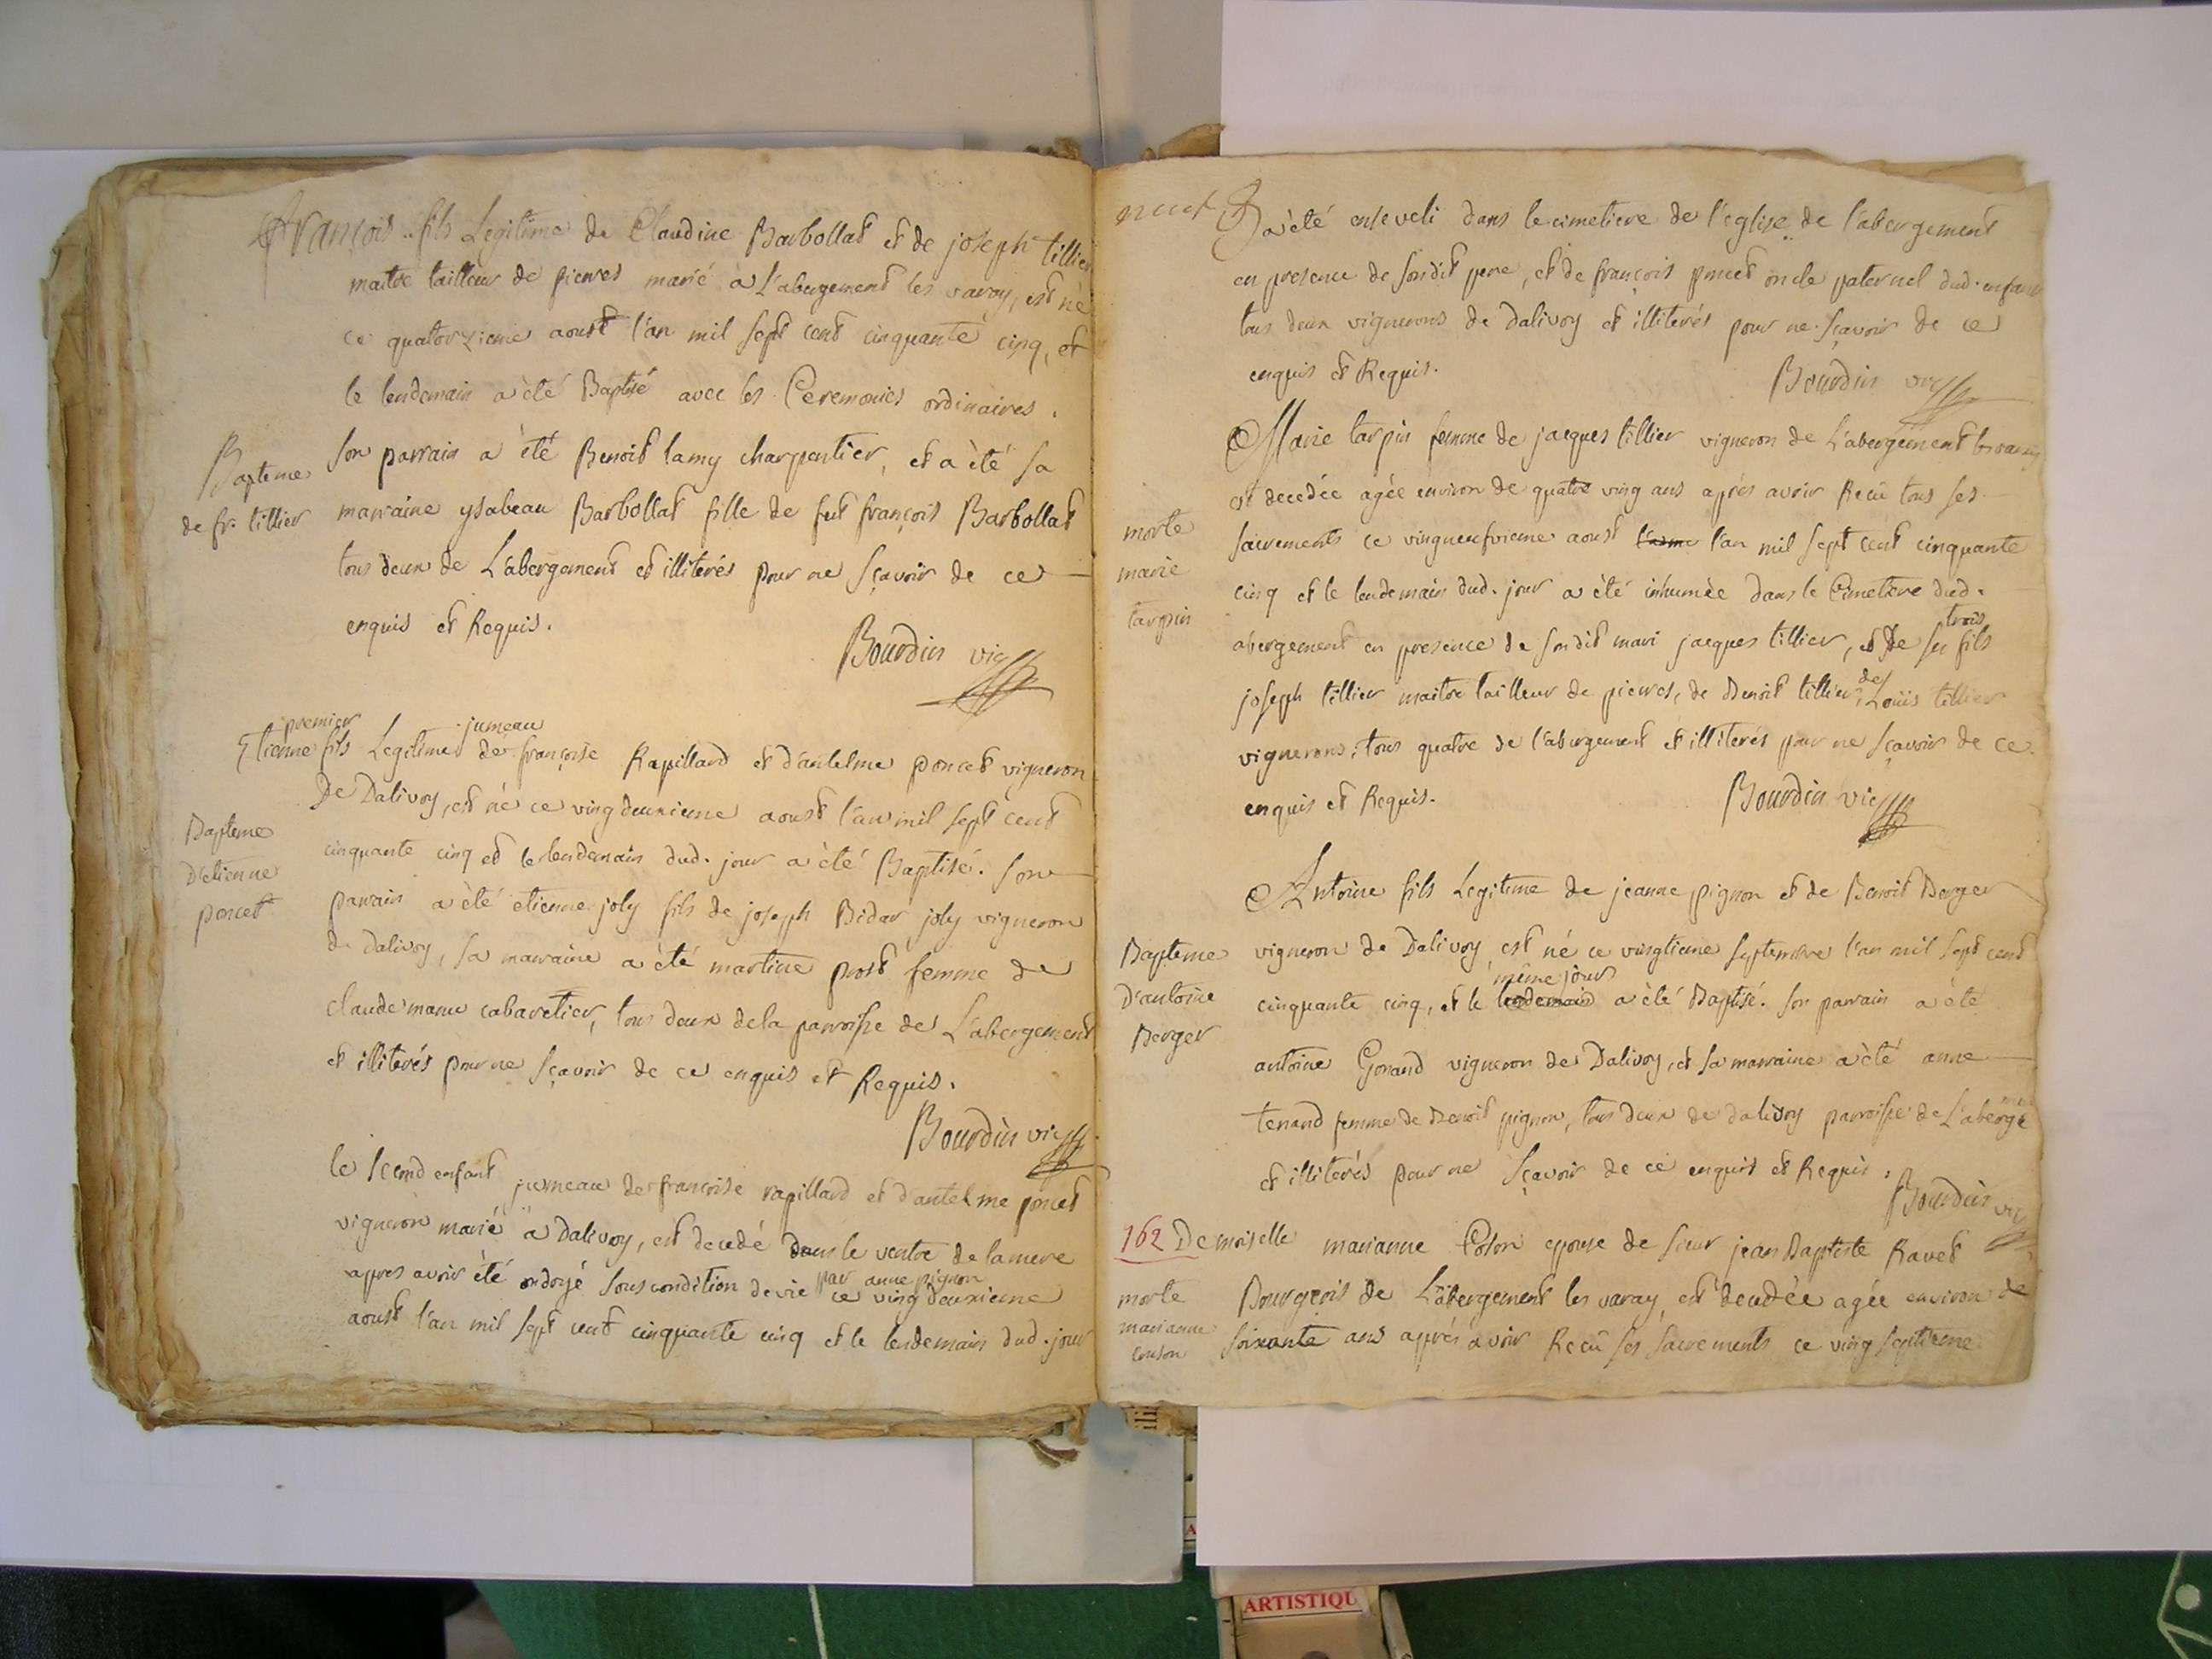 François fils Legitime de Claudine Barbollat et de joseph tillier
maitre tailleur de pierres marié a L'abergement les varey, est né
ce quatorzieme aoust l'an mil sept cent cinquante cinq, et
le lendemain a èté Baptisé avec les Ceremonies ordinaires.
Bapteme
de fr. tillier
son parrain a èté Benoit lamy charpentier, et a èté sa
marraine ysabeau Barbollat fille de feut françois Barbollat
tous deux de L'abergement et illiterés pour ne sçavoir de ce
enquis et Requis.
Bourdin vic
premier jumeau
Etienne fils Legitime de françoise Rapillard et d'antelme poncet vigneron
De Dalivoy, est né ce ving deuxieme aoust l'an mil sept cent
Bapteme
D'etienne
poncet
cinquante cinq et le lendemain dud. jour a èté Baptisé. son
parrain a èté etienne joly fils de joseph Bidar joly vigneron
de Dalivoy, sa marraine a èté martine prost femme de
claude manu cabaretier, tous deux de la parroisse de L'abergement
et illiterés pour ne sçavoir de ce enquis et Requis.
Bourdin vic
le second enfant jumeau de françoise rapillard et d'antelme poncet
vigneron marié a Dalivoy, est decedé dans le ventre de la mere
par anne pignon
apres avoir èté ondoyé sous condition de vie ce ving deuxieme
aoust l'an mil sept cent cinquante cinq et le lendemain dud. jour
a èté enseveli dans le cimetiere de l'eglise de l'abergement
en presence de sondit pere, et de françois poncet oncle paternel dud. enfant
tous deux vignerons de Dalivoy et illiterés pour ne sçavoir de ce
enquis et Requis.
Bourdin vic
Marie tarpin femme de jacques tillier vigneron de L'abergement les varey
est decedée agée environ de quatre ving ans aprés avoir Recu tous ses
morte
marie
tarpin
sacrements ce vingneufvieme aoust l'an mil sept cent cinquante
cinq et le lendemain dud. jour a èté inhumée dans le Cimetiere dud.
trois
abergement en presence de sondit mari jacques tillier, et de ses fils
de
joseph tillier maitre tailleur de pierres, de Benoit tillier, Loüis tillier
vignerons, tous quatre de l'abergement et illiterés pour ne sçavoir de ce
enquis et Requis.
Bourdin vic
Antoine fils Legitime de jeanne pignon et de Benoit Berger
Bapteme
D'antoine
Berger
vigneron de Dalivoy est né ce vingtieme septembre l'an mil sept cent
même jour
cinquante cinq, et le lendemain a èté Baptisé. son parrain a èté
antoine Gonand vigneron de Dalivoy, et sa marraine a èté anne
tenand femme de Benoit pignon, tous deux de dalivoy parroisse de L'abergé
et illiterés pour ne sçavoir de ce enquis et Requis.
Bourdin vic
162 Demoiselle marianne Coson epouse de sieur jean Baptiste Ravet
morte
marianne
couson
Bourgeois de L'abergement les varay, est decedée agée environ de
soixante ans aprés avoir Recu ses sacrements ce ving septieme
ARTISTIQU